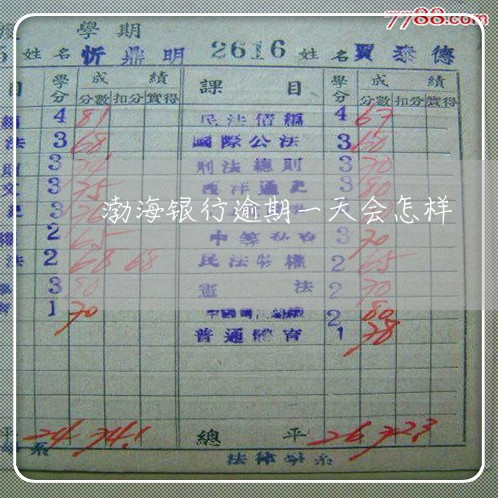 7788.com
學期
姓名 忻鼎明 2616 姓名 賈泰德
目 學分 成績 課目 學分 成績
分數 扣分 實得 分數 扣分 實得
4 81 民法債編 4 67
法 3 68 國際公法 3 60
3 刑法總則 3 70
文 3 75 西洋通史 3 80
史 3 76 3
權 2 65 中等 3 70
法 2 68 68 民法物權 2 65
3 80 憲法 2 70
育 1 70 2 80
普通體育 1 78
渤海银行逾期一天会怎样
平 24 74.1 總平 26 72.3
系 法律學系